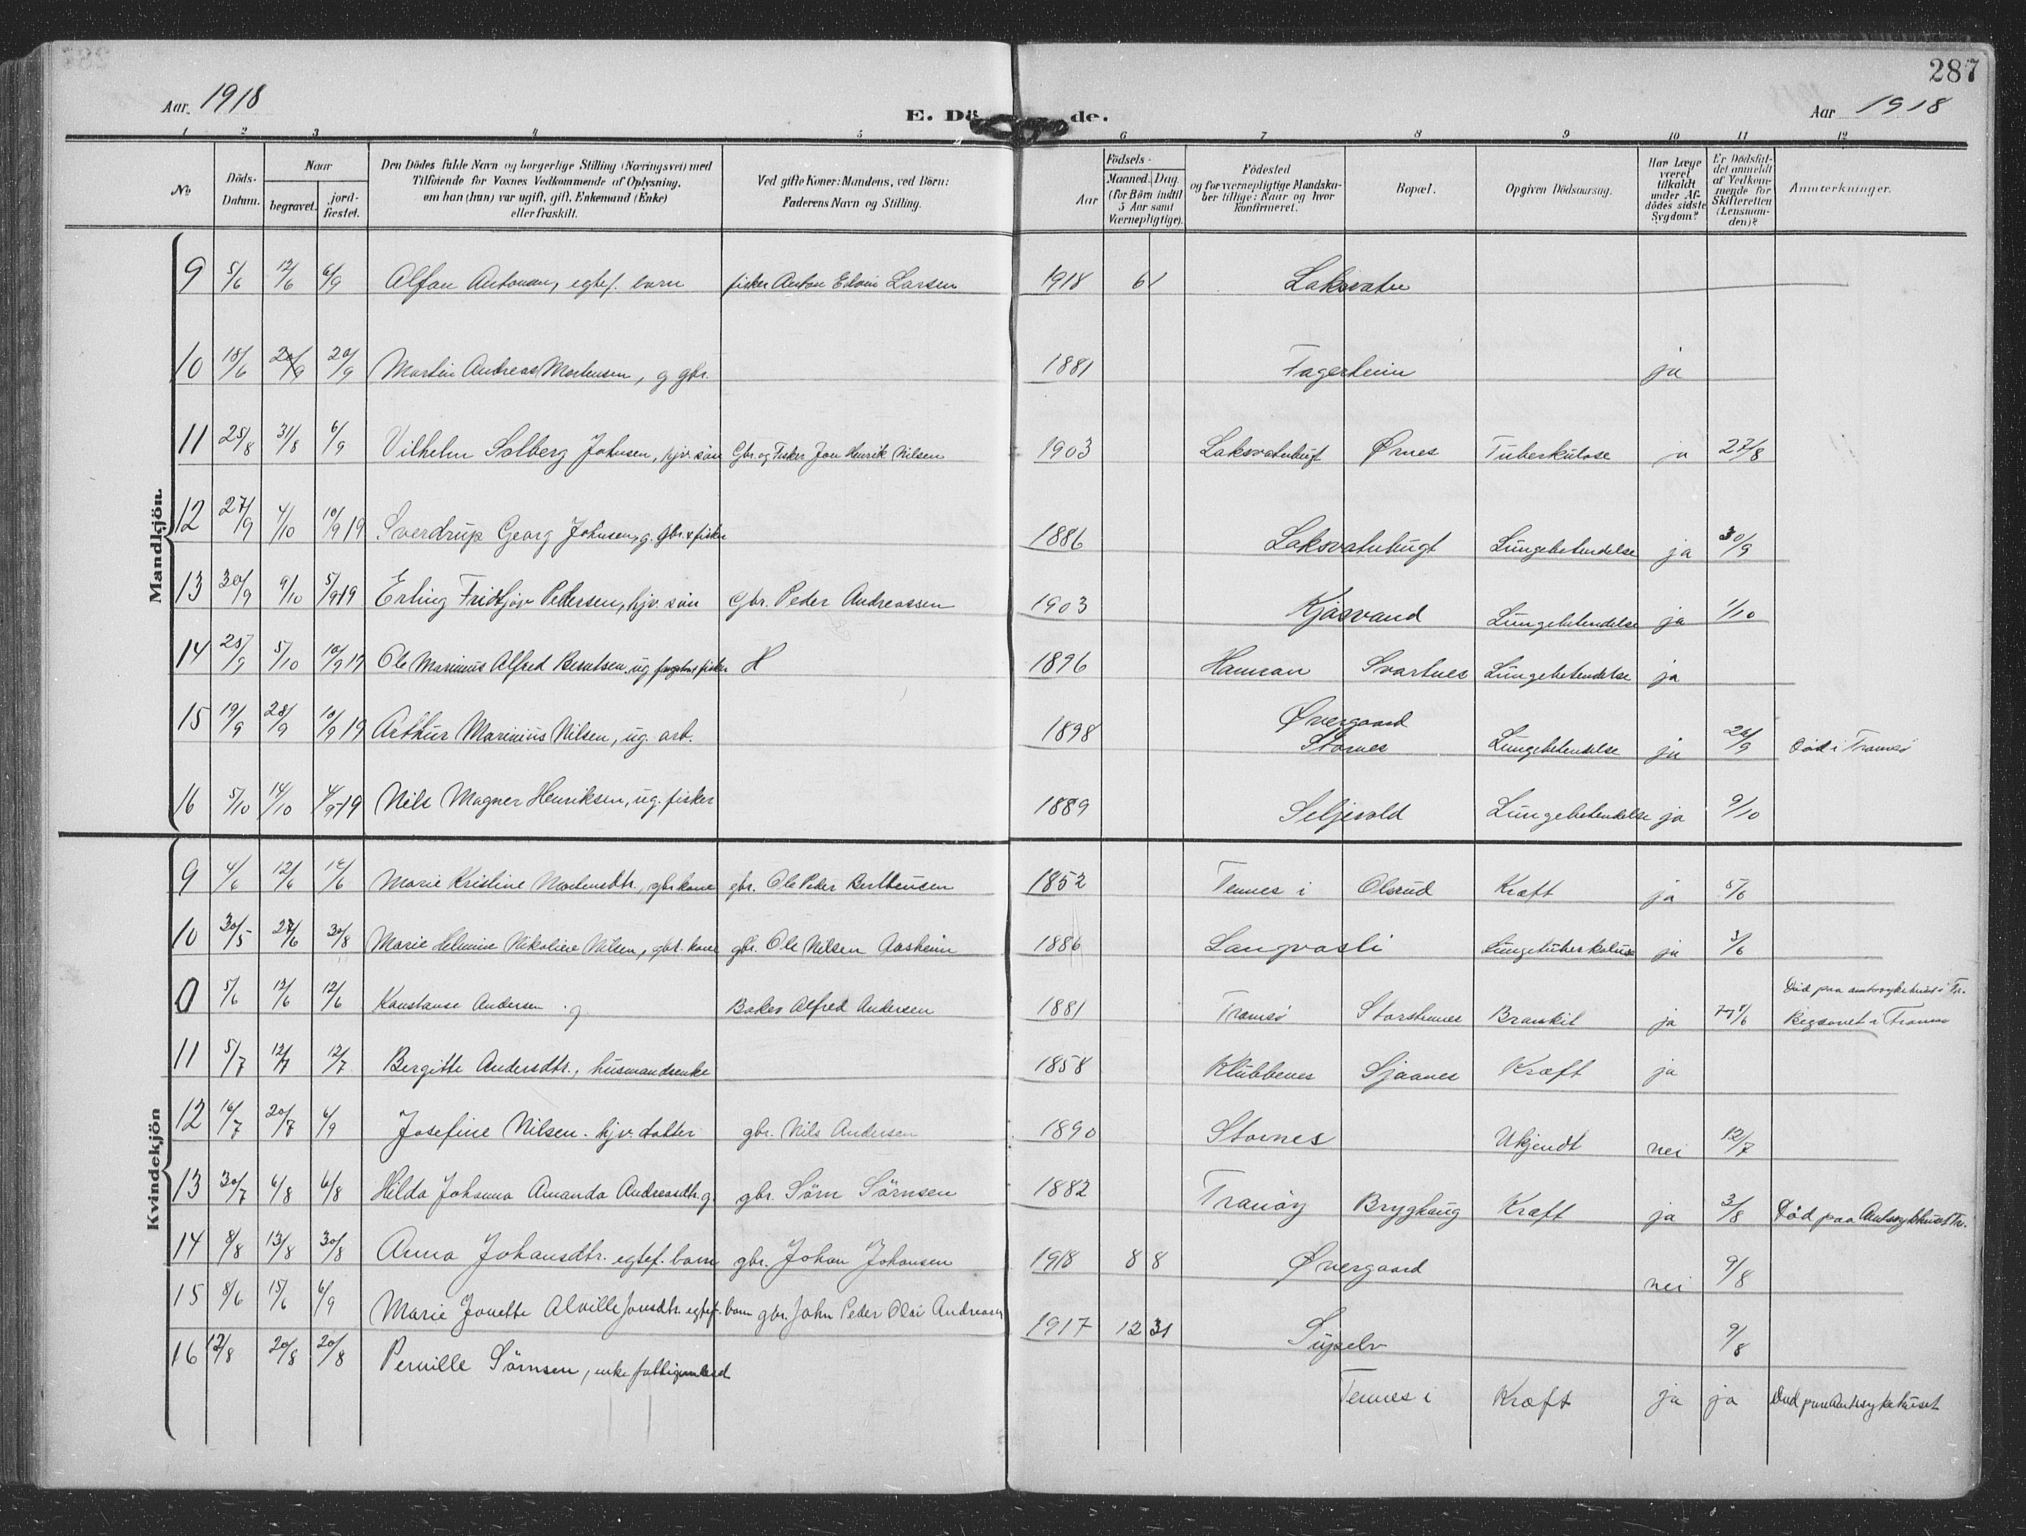 287
Aar 1918
E. Dö de.
Aar 1918
1 2 3 4 5 6 7 8 9 10 11 12
No
Döds-
Datum.
Naar
begravet.
jord-
fæstet.
Den Dödes fulde Navn og borgerlige Stilling (Næringsvei) med
Tilföiende for Voxnes Vedkommende af Oplysning,
om han (hun) var ugift, gift, Enkemand (Enke)
eller fraskilt.
Ved gifte Koner: Mandens, ved Börn:
Faderens Navn og Stilling.
Födsels-
Aar
Maaned. Dag.
(for Börn indtil
5 Aar samt
Værnepligtige).
Födested
og for værnepligtige Mandska-
ber tillige: Naar og hvor
konfirmeret.
Bopæl.
Opgiven Dödsaarsag.
Har Læge
været
tilkaldt
under Af-
dödes sidste
Sygdom?
Er Dödsfal-
det anmeldt
af Vedkom-
mende for
Skifteretten
(Lensman-
den)?
Anmærkninger.
Mandkjön.
9 5/6 12/6 6/9 Alfon Antonsen, egtef. barn fisker Anton Edvin Larsen 1918 6 1 Laksvatn
10 18/6 20/9 20/9 Martin Andreas Mortensen, g gbr. 1881 Fagerheim ja
11 25/8 31/8 6/9 Vilhelm Solberg Johnsen, hjv. sön Gbr. og Fisker Jon Henrik Nilsen 1903 Laksvatnbugt Örnes Tuberkulose ja 27/8
12 27/9 4/10 10/9 19 Sverdrup Georg Johnsen, g. gbr. & fisker 1886 Laksvatnbugt Lungebetendelse ja 30/9
13 30/9 9/10 5/9 19 Erling Fridtjov Pedersen, hjv. sön Gbr. Peder Andreassen 1903 Kjosvand Lungebetendelse ja 1/10
14 25/9 5/10 10/9 19 Ole Marinius Alfred Berntsen, ug. fisker 1896 Hamran Svartnes Lungebetendelse ja
15 19/9 28/9 10/9 19 Arthur Marinius Nilsen, ug. arb. 1898 Övergaard
Stornes Lungebetendelse ja 26/9 Död i Tromsö
16 5/10 14/10 4/9-19 Nils Magner Henriksen, ug. fisker 1889 Seljevold Lungebetendelse ja 9/10
Kvindekjön
9 4/6 12/6 12/6 Marie Kristine Mortensdtr., gbr kone gbr. Ole Peder Bertheusen 1852 Tennes i Olsrud Kræft ja 5/6
10 30/5 27/6 30/8 Marie Helmine Nikoline Nilsen, gbr. kone gbr. Ole Nilsen Aasheim 1886 Langvasli Lungetuberkulose ja 3/6
0 5/6 12/6 12/6 Konstanse Andersen g Baker Alfred Andersen 1881 Tromsö Storstennes Bronkit ja Död paa amtssykehuset i Tr.
Begravet i Tromsö
11 5/7 12/7 12/7 Bergitte Andersdtr., husmandsenke 1858 Klubbenes Sjaanes Kræft ja
12 16/7 20/7 6/9 Josefine Nilsen. hjv. datter gbr. Nils Andersen 1890 Stornes Ukjendt nei 12/7
13 30/7 6/8 6/8 Hilda Johanna Amanda Andreasdtr. g. gbr. Sörn Sörnsen 1882 Tranöy Brygghaug Kræft ja 3/8 Död paa Amtssykhuset Tr.
14 8/8 13/8 30/8 Anna Johansdtr. egtef. barn gbr. Johan Johansen 1918 8 8 Övergaard nei 9/8
15 8/6 15/6 6/9 Marie Jonette Alville Jonsdtr. egtef. barn gbr. John Peder Olai Andreasen 1917 12 31 9/8
16 12/8 20/8 20/8 Pernille Sörnsen, enke fattigunderst Tennes i Kræft ja ja Död paa Amtssykehuset